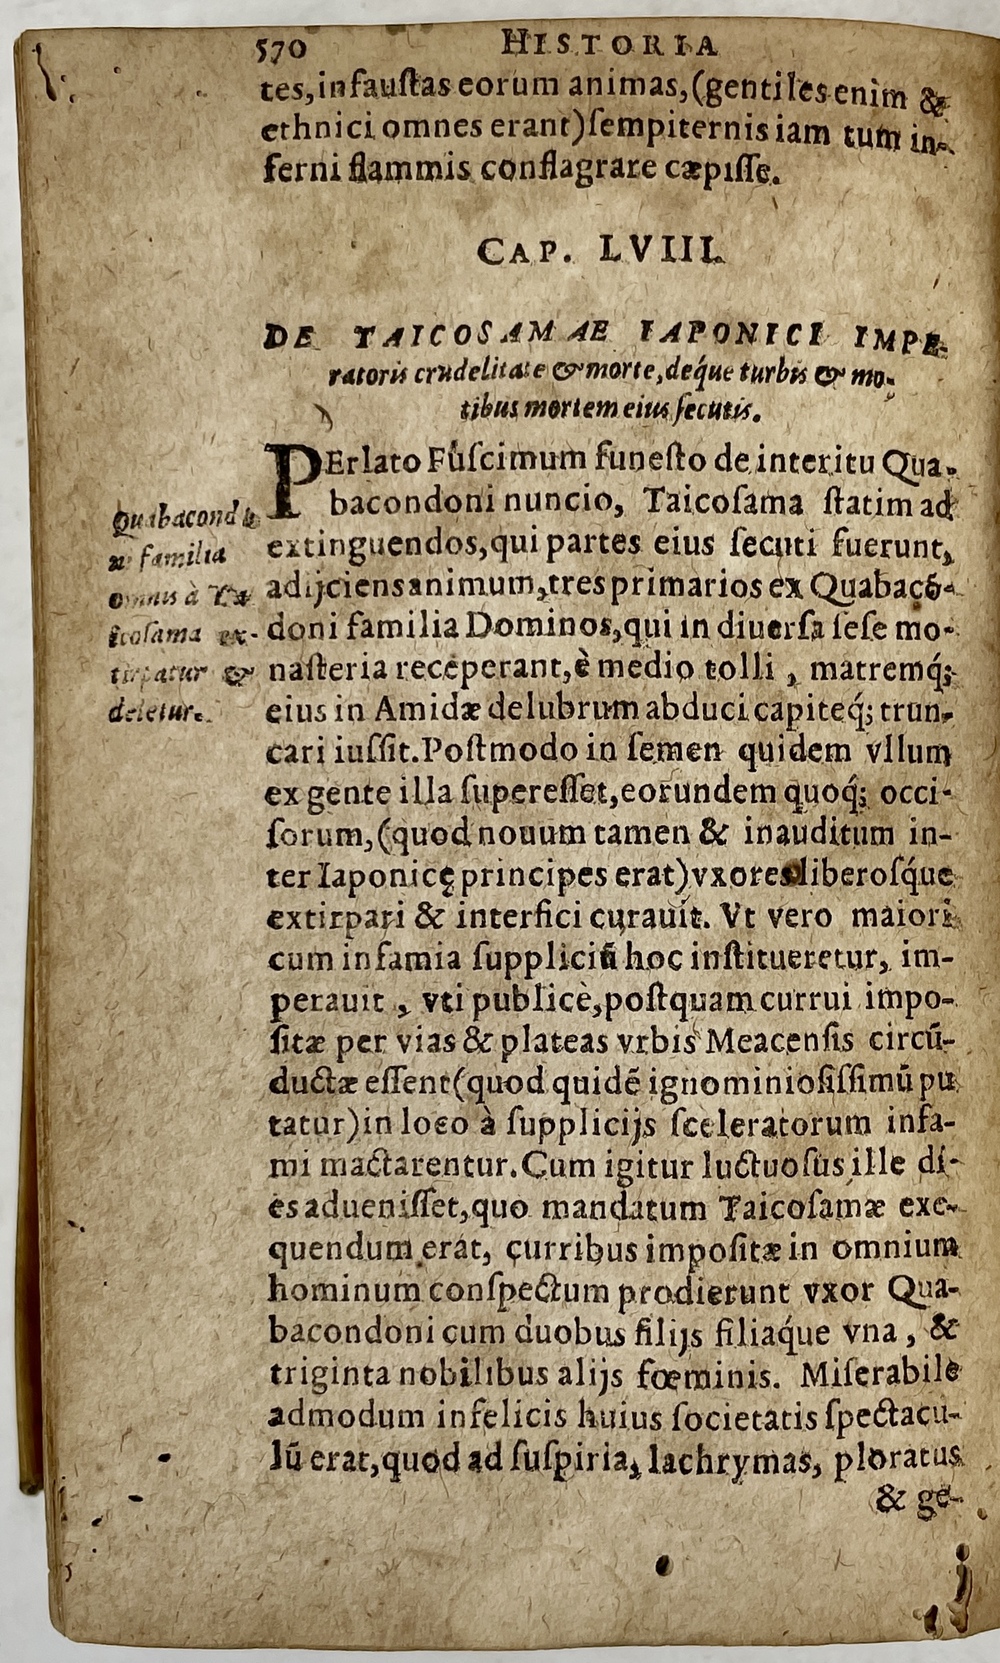 570 HISTORIA
tes, infauſtas eorum animas, (gentiles enim &
ethnici omnes erant) ſempiternis iam tum in-
ferni flammis conflagrare cæpiſſe.
CAP. LVIII.
DE TAICOSAMAE IAPONICI IMPE-
ratoris crudelitate & morte, deq́ue turbis & mo-
tibus mortem eius ſecutis.
PErlato Fuſcimum funeſto de interitu Qua-
bacondoni nuncio, Taicoſama ſtatim ad
extinguendos, qui partes eius ſecuti fuerunt,
adijciens animum, tres primarios ex Quabacō-
doni familia Dominos, qui in diuerſa ſeſe mo-
naſteria receperant, è medio tolli, matremq́;
eius in Amidæ delubrum abduci capiteq́; trun-
cari iuſſit. Poſtmodo in ſemen quidem vllum
ex gente illa ſupereſſet, eorundem quoq́; occi-
ſorum, (quod nouum tamen & inauditum in-
ter Iaponicę principes erat) vxores liberoſq́ue
extirpari & interfici curauit. Vt vero maiori
cum infamia ſuppliciū hoc inſtitueretur, im-
perauit, vti publicè, poſtquam currui impo-
ſitæ per vias & plateas vrbis Meacenſis circū-
ductæ eſſent (quod quidē ignominioſiſſimū pu
tatur) in loco à ſupplicijs ſceleratorum infa-
mi mactarentur. Cum igitur luctuoſus ille di-
es adueniſſet, quo mandatum Taicoſamæ exe-
quendum erat, curribus impoſitæ in omnium
hominum conſpectum prodierunt vxor Qua-
bacondoni cum duobus filijs filiaq́ue vna, &
triginta nobilibus alijs fœminis. Miſerabile
admodum infelicis huius ſocietatis ſpectacu-
lū erat, quod ad ſuſpiria, lachrymas, ploratus
& ge-
Quabacondo
familia
omnis à Ta
icoſama ex-
tirpatur &
deletur.